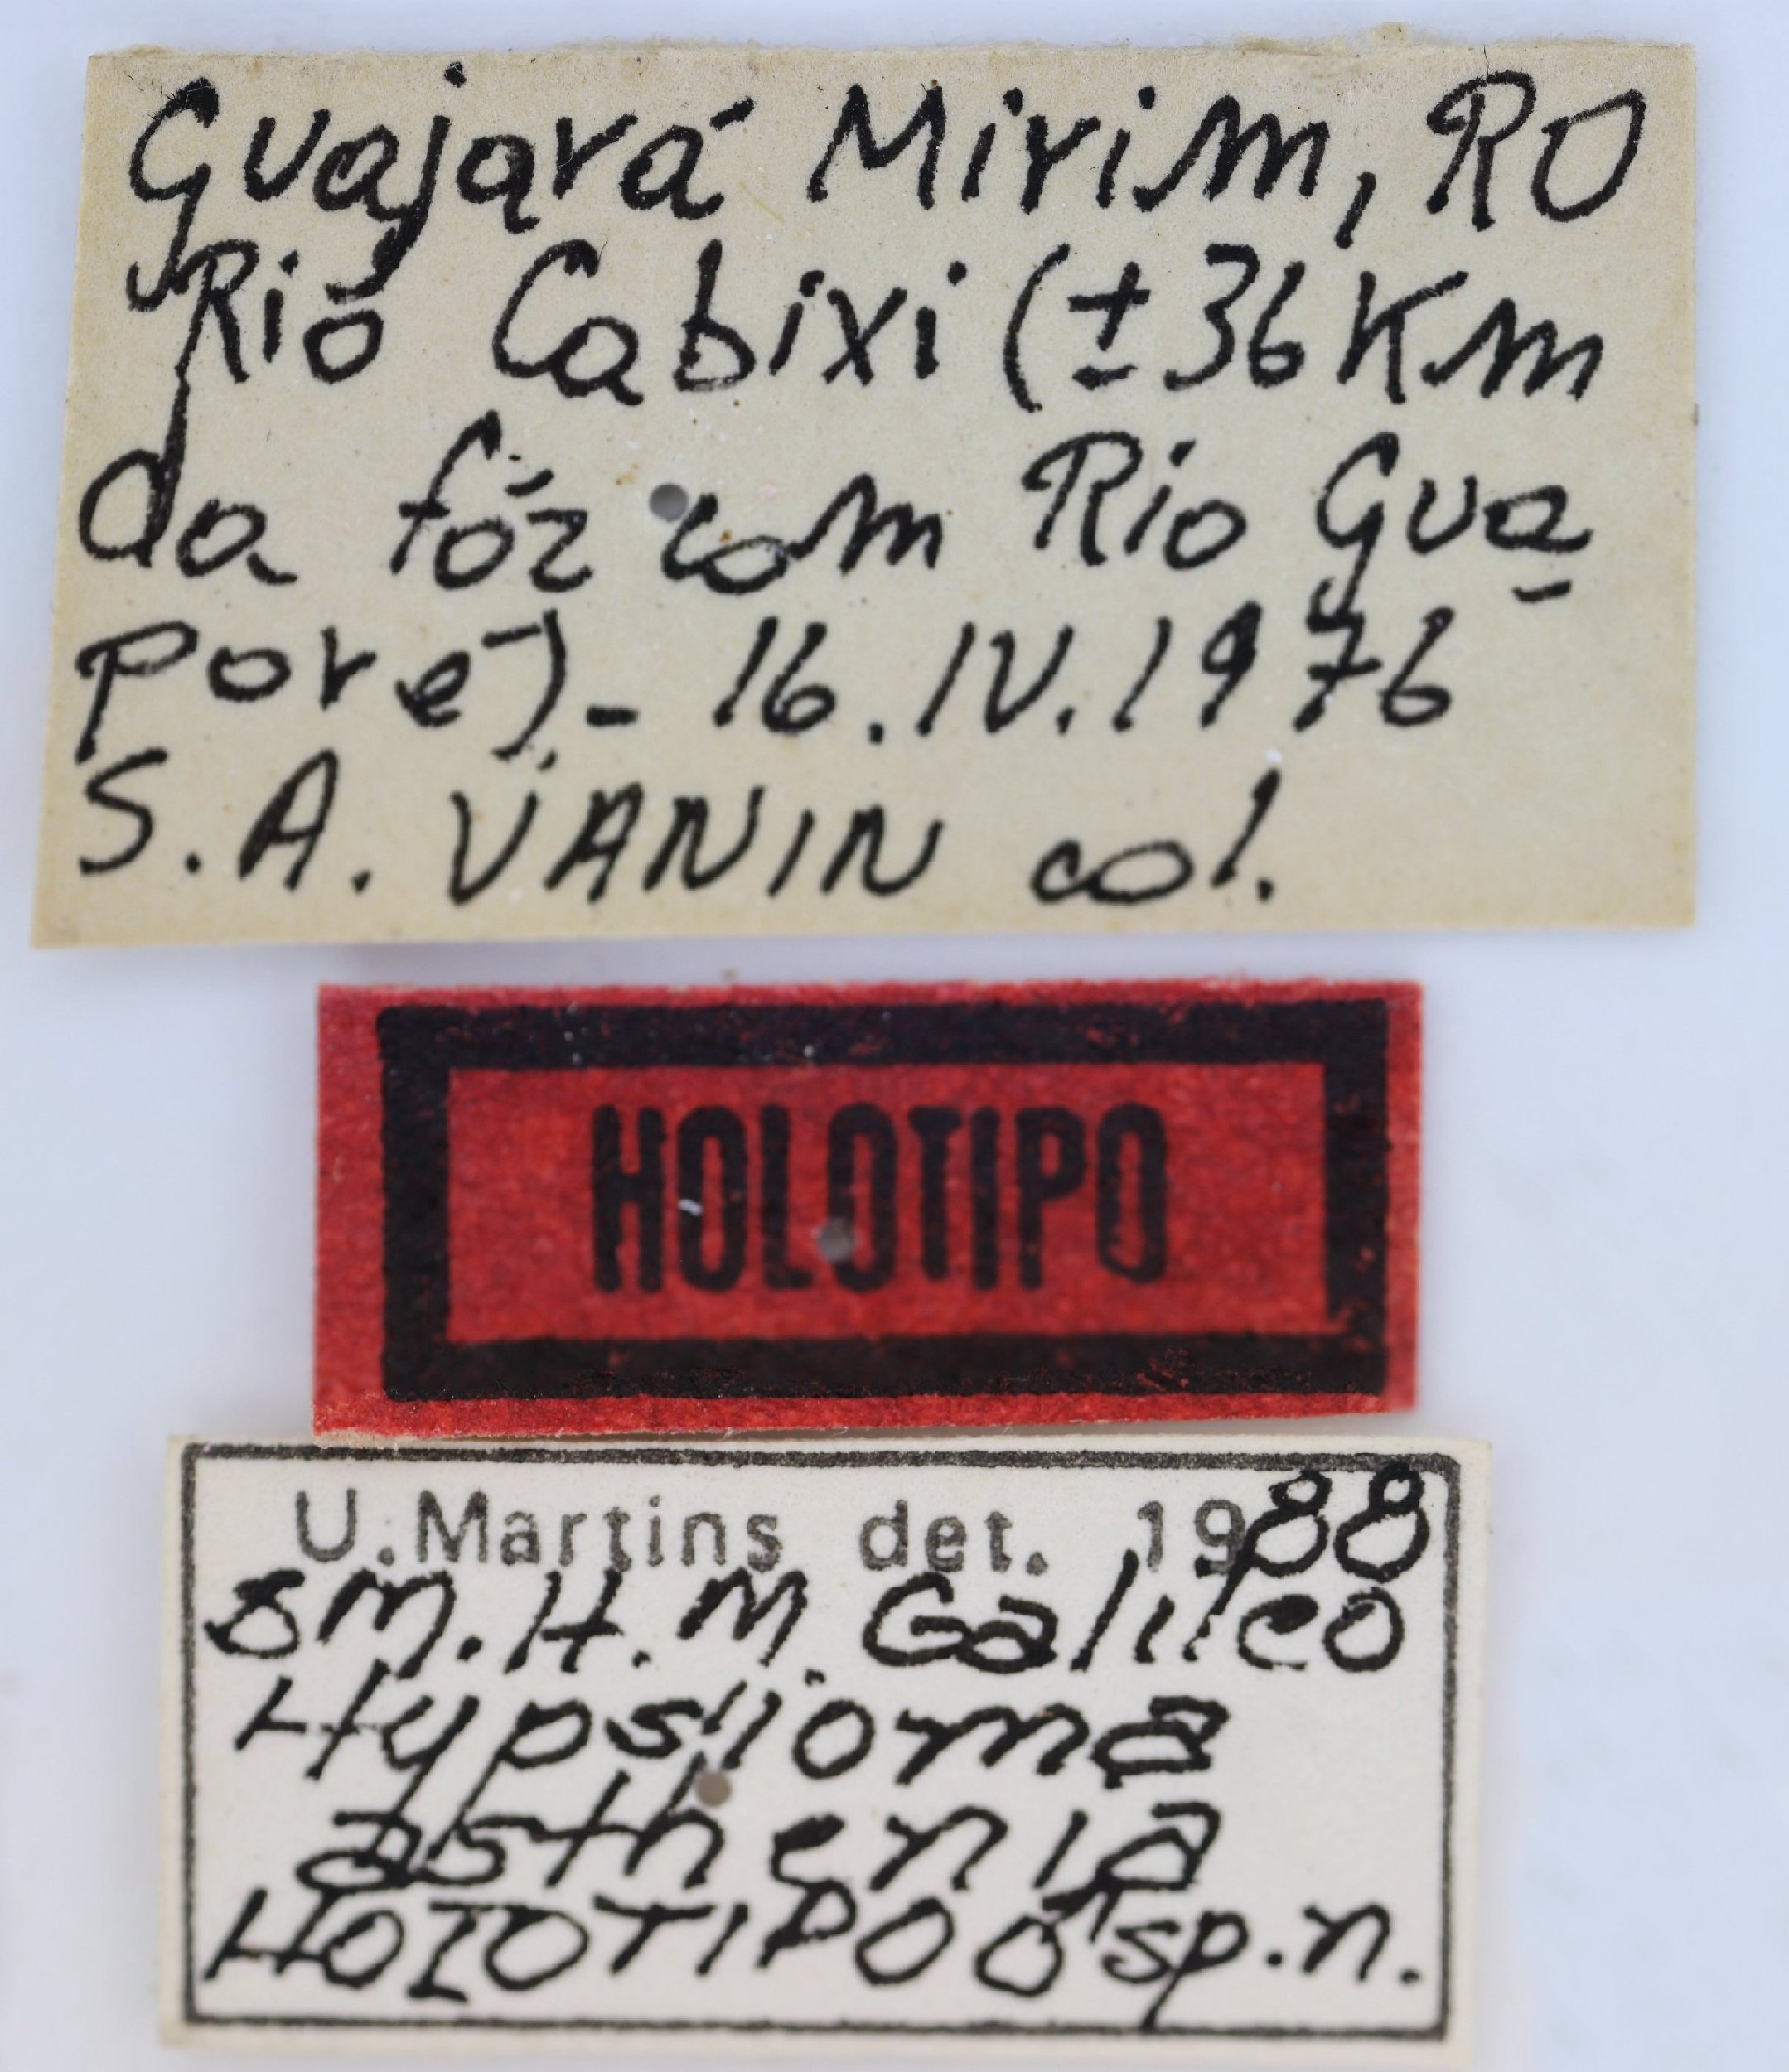 Guajará Mirim, RO
Rio Cabixi (± 36 Km
da fóz com Rio Gua-
poré) - 16.IV.1976
S.A. VANIN col.
HOLOTIPO
U.Martins det. 1988
& M.H.M. Galileo
Hypsioma
asthenia
HOLOTIPO ♂ sp.n.